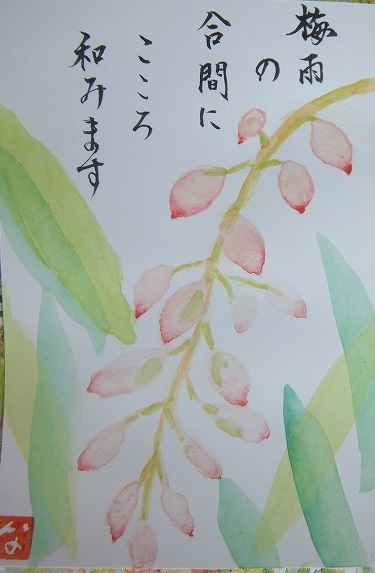 梅雨
の
合間に
こころ
和みます
な